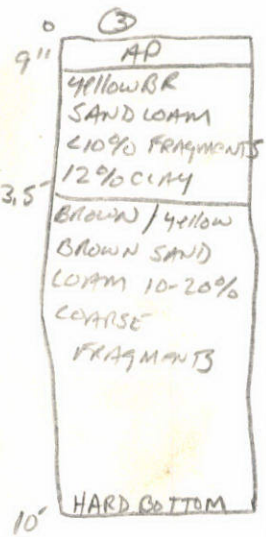 0 3
9" AP
yellow BR
SAND LOAM
<10% FRAGMENTS
12% CLAY
3.5'
BROWN / yellow
BROWN SAND
LOAM 10-20%
COARSE
FRAGMENTS
HARD BOTTOM
10'